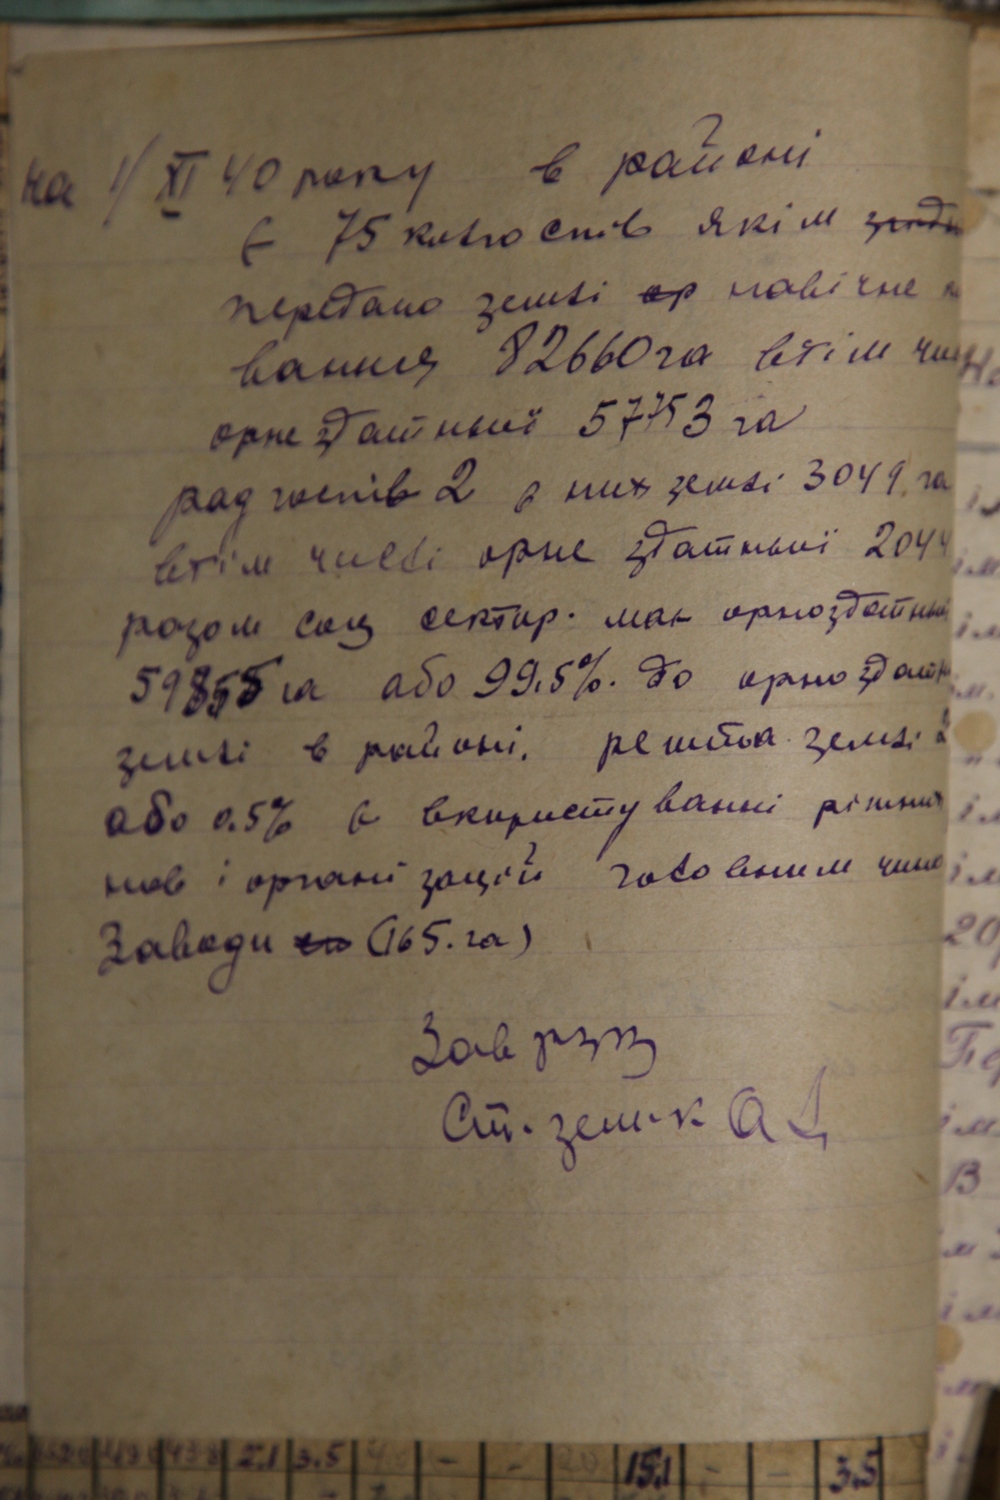 на 1/XI 40 року в районі
є 75 колгоспів яким
передано землі ор навічне
вання 82660 га втім чис
орне здатньої 57753 га
радгоспів 2 в них землі 3049 га
втім числі орне здатньої 2044
разом соц сектор. має орноздатньої
59855 га або 99.5%. до орно здатн
землі в районі. решта землі
або 0.5% є вкористуванні різних
нов і організацій головним чино
Заводи (165.га)
Зав рзв
Ст. зем-к
2.1 3.5 - - 15.1 - - 3.5